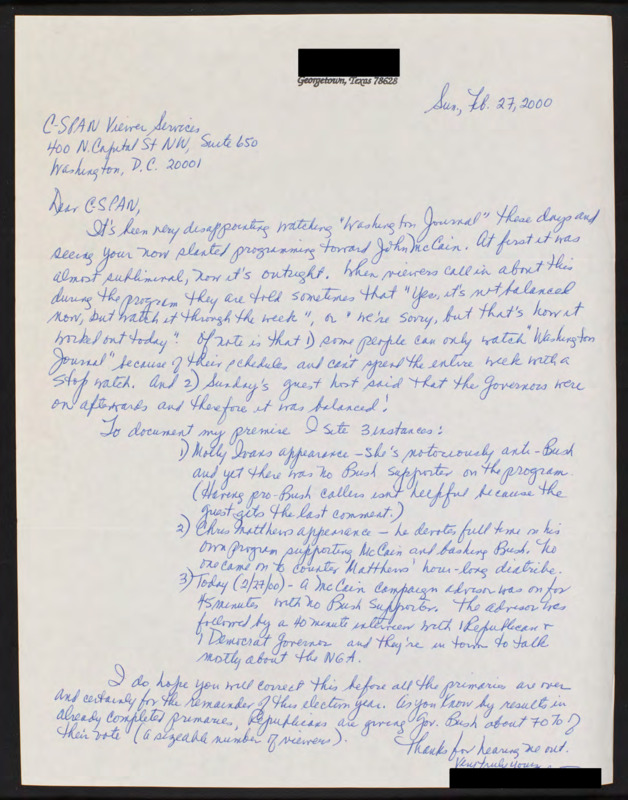 Georgetown, Texas 78628
Sun, Feb. 27, 2000
C-SPAN Viewer Services
400 N. Capital St NW, Suite 650
Washington, D.C. 20001
Dear C-SPAN,
It's been very disappointing watching "Washington Journal" these days and
seeing your now slanted programming toward John McCain. At first it was
almost subliminal, now it's outright. When viewers call in about this
during the program they are told sometimes that "Yes, it's not balanced
now, but watch it through the week", or "we're sorry, but that's how it
worked out today". Of note is that 1) some people can only watch "Washington
Journal" because of their schedules and can't spend the entire week with a
stop watch. And 2) Sunday's guest host said that the Governors were
on afterwards and therefore it was balanced!
To document my premise I site 3 instances:
1) Molly Ivans appearance - She's notoriously anti-Bush
and yet there was no Bush supporter on the program.
(Having pro-Bush callers isn't helpful because the
guest gets the last comment.)
2) Chris Matthews appearance - he devotes full time on his
own program supporting McCain and bashing Bush. No
one came on to counter Matthews' hour-long diatribe.
3) Today (2/27/00) - A McCain campaign advisor was on for
45 minutes with no Bush Supporter. The advisor was
followed by a 40 minute interview with 1 Republican &
1 Democrat Governor and they're in town to talk
mostly about the NGA.
I do hope you will correct this before all the primaries are over
and certainly for the remainder of this election year. As you know by results in
already completed primaries, Republicans are giving Gov. Bush about 70% of
their vote (a sizeable number of viewers).
Thanks for hearing me out.
Very truly yours,